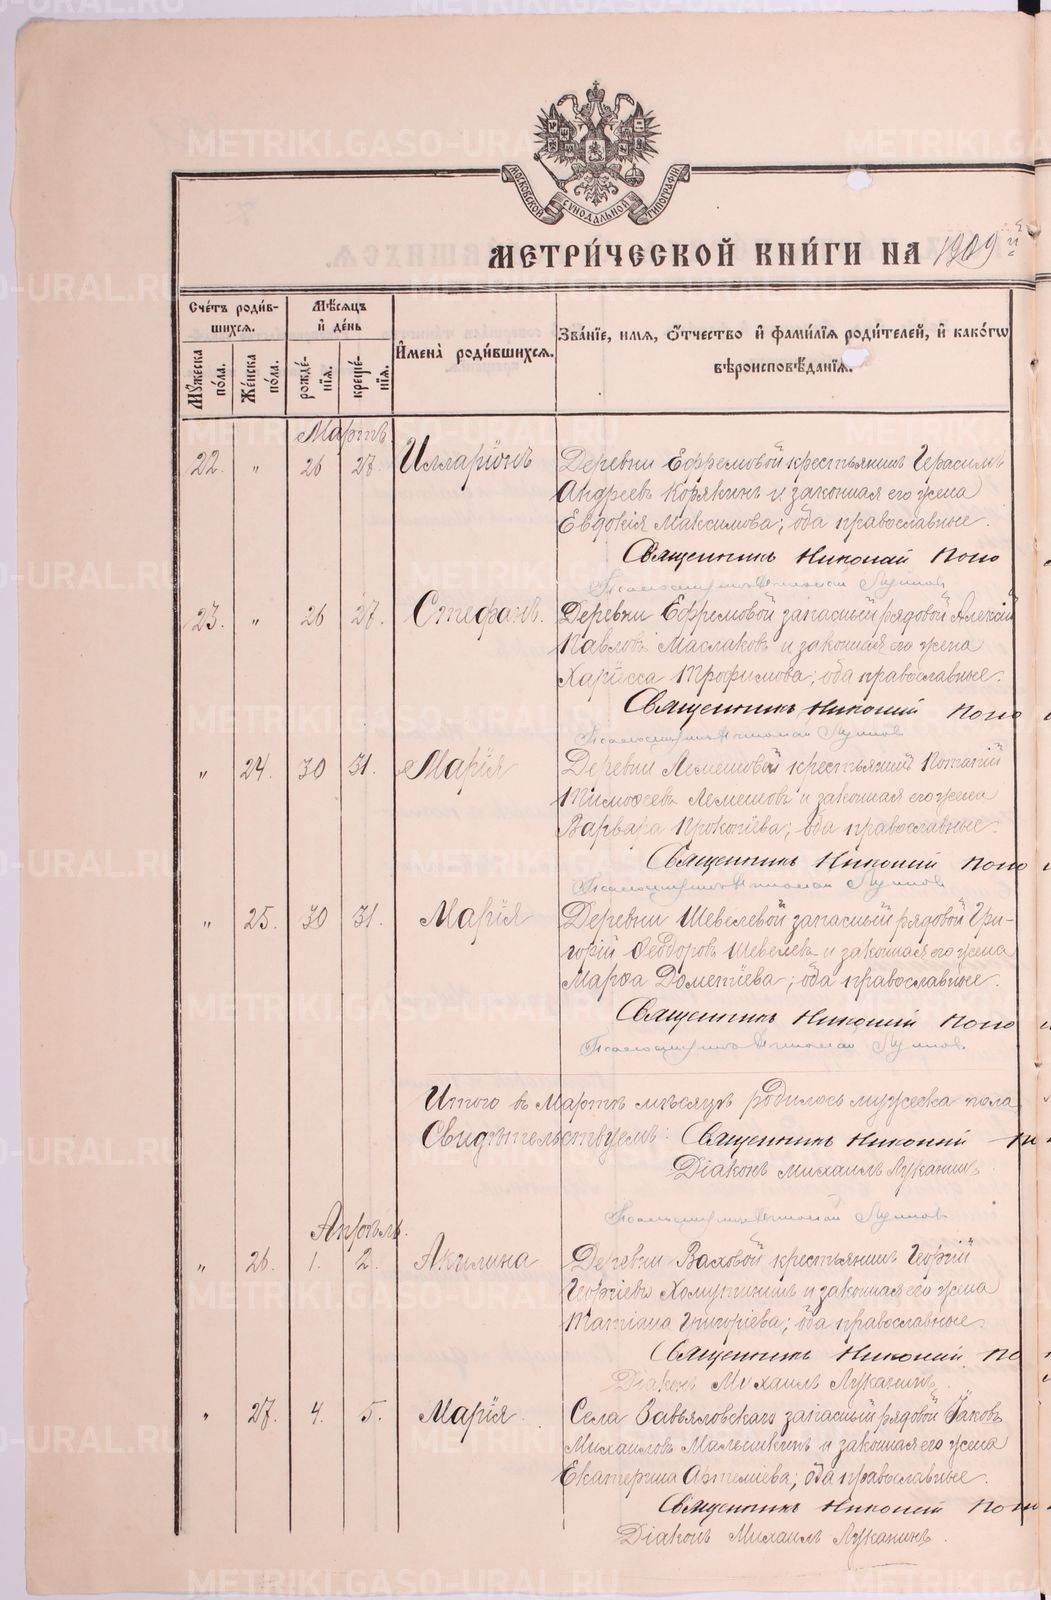 МОСКОВСКОЙ СѴНОДАЛЬНОЙ ТИПОГРАФІИ
МЕТРИ́ЧЕСКОЙ КНИ́ГИ НА 1909 й
Сче́тъ роди́в-
шихсѧ.
Мѣ́сѧцъ
и҆ де́нь
Мꙋ́жеска
по́ла.
Же́нска
по́ла.
рожде́-
нїѧ.
креще́-
нїѧ.
И҆мена̀ роди́вшихсѧ.
Зва́нїе, имѧ, ѻ҆́тчество и҆ фами́лїѧ роди́телей, и҆ како́гѡ
вѣроисповѣ́данїѧ.
Мартъ.
22. „ 26 27. Илларіонъ Деревни Ефремовой крестьянинъ Герасимъ
Андреевъ Корякинъ и законная его жена
Евдокія Максимова; оба православные.
Священникъ Николай Попо
Псаломщикъ
23. „ 26 27. Стефанъ. Деревни Ефремовой запасный рядовой Алексій
Павловъ Маслаковъ и законная его жена
Харисса Трофимова; оба православные.
Священникъ Николай Попо
Псаломщикъ
„ 24. 30 31. Марія Деревни Лемешовой крестьянинъ Потапій
Тимоѳеевъ Лемешовъ и законная его жена
Варвара Прокопіева; оба православные.
Священникъ Николай Попо
Псаломщикъ
„ 25. 30 31. Марія Деревни Шевелевой запасный рядовой Гри-
горій Ѳеодоровъ Шевелевъ и законная его жена
Марѳа Дометіева; оба православные.
Священникъ Николай Попо
Псаломщикъ
Итого въ Мартѣ мѣсяцѣ родилось мужеска пола
Свидѣтельствуемъ: Священникъ Николай По
Діаконъ Михаилъ Луканинъ.
Псаломщикъ
Апрѣль.
„ 26. 1. 2. Акилина Деревни Ваховой крестьянинъ Георгій
Георгіевъ Холупининъ и законная его жена
Татіана Григоріева; оба православные.
Священникъ Николай По
Діаконъ Михаилъ Луканинъ.
„ 27. 4. 5. Марія. Села Завьяловскаго запасный рядовой Іаковъ
Михаиловъ Малышкинъ и законная его жена
Екатерина Артеміева; оба православные.
Священникъ Николай Попо
Діаконъ Михаилъ Луканинъ.
METRIKI.GASO-URAL.RU